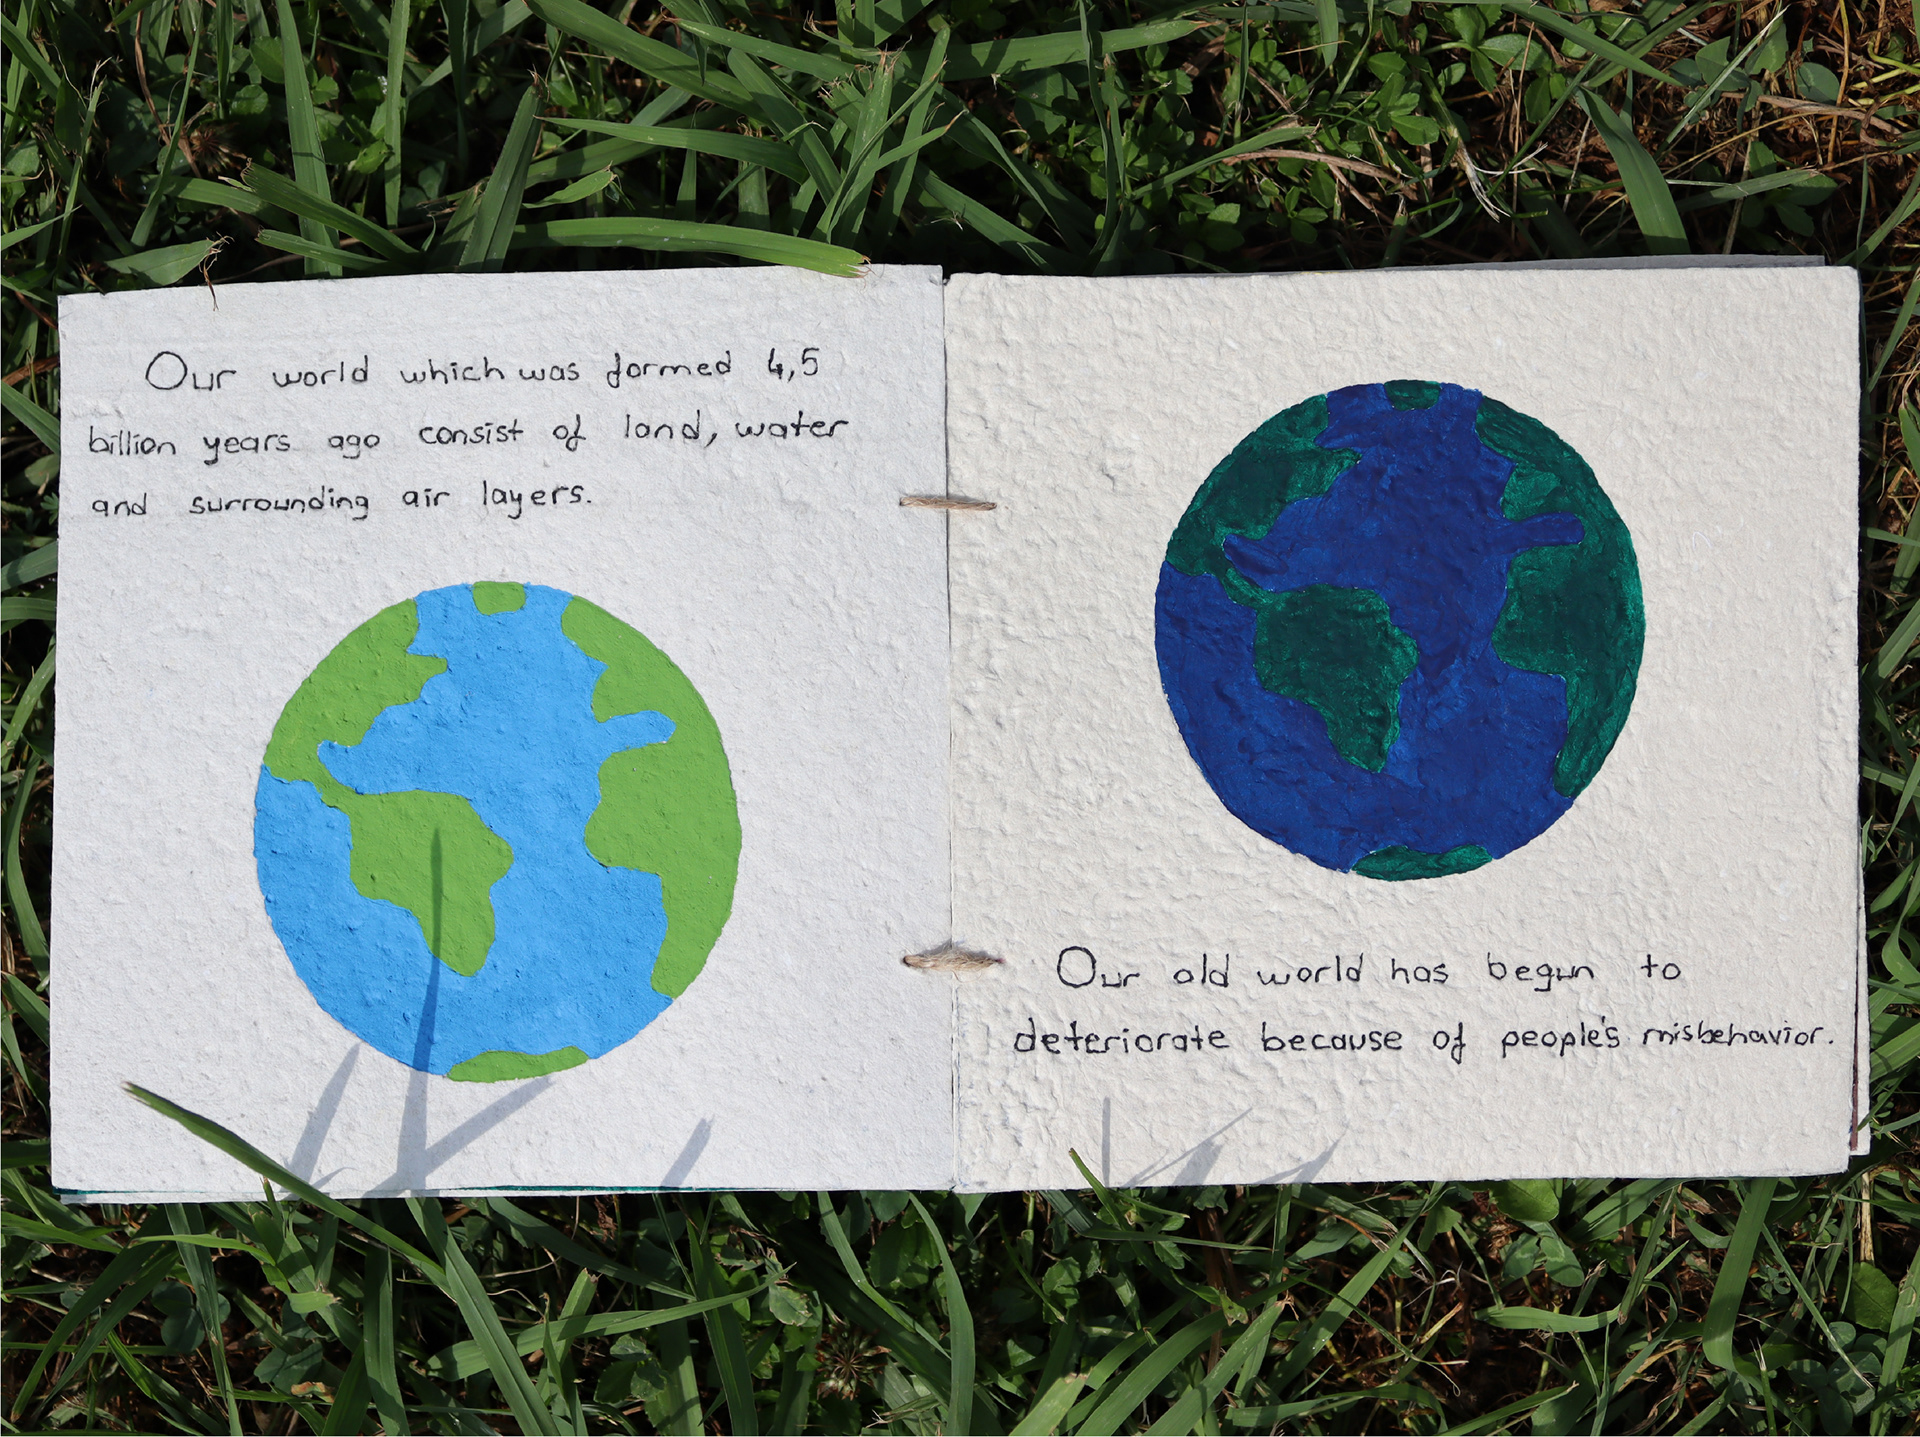 Our world which was formed 4,5
billion years ago consist of land, water
and surrounding air layers.
Our old world has begun to
deteriorate because of people's misbehavior.